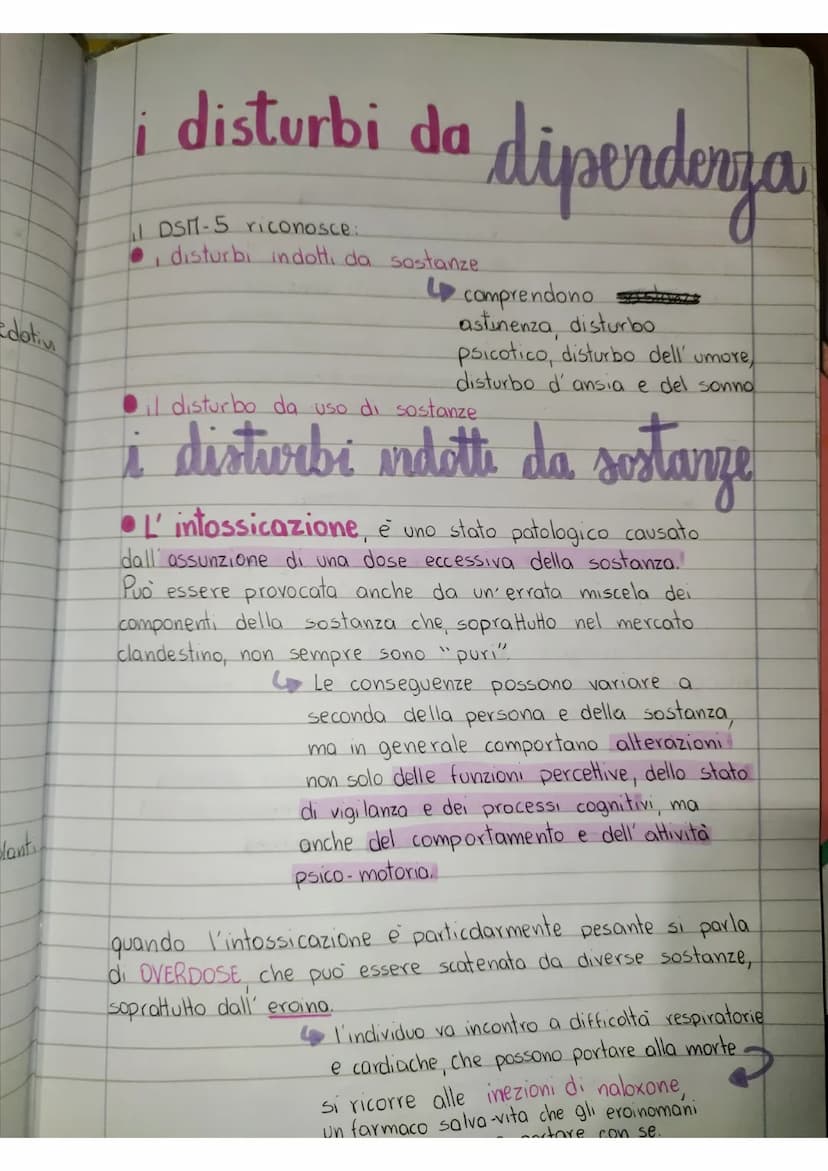 i disturbi da dipendenza
il DSM-5 riconosce:
• i disturbi indotti da sostanze
↳ comprendono
astinenza, disturbo
psicotico, disturbo dell'umore,
disturbo d'ansia e del sonno
• il disturbo da uso di sostanze
i disturbi indotti da sostanze
• L'intossicazione, è uno stato patologico causato
dall'assunzione di una dose eccessiva della sostanza.
Può essere provocata anche da un'errata miscela dei
componenti della sostanza che, soprattutto nel mercato
clandestino, non sempre sono "puri".
↳ Le conseguenze possono variare a
seconda della persona e della sostanza,
ma in generale comportano alterazioni
non solo delle funzioni percettive, dello stato
di vigilanza e dei processi cognitivi, ma
anche del comportamento e dell'attività
psico-motoria.
quando l'intossicazione è particolarmente pesante si parla
di OVERDOSE, che può essere scatenata da diverse sostanze,
soprattutto dall'eroina.
↳ l'individuo va incontro a difficoltà respiratorie
e cardiache, che possono portare alla morte
si ricorre alle inezioni di naloxone,
un farmaco salva-vita che gli eroinomani
portare con se.